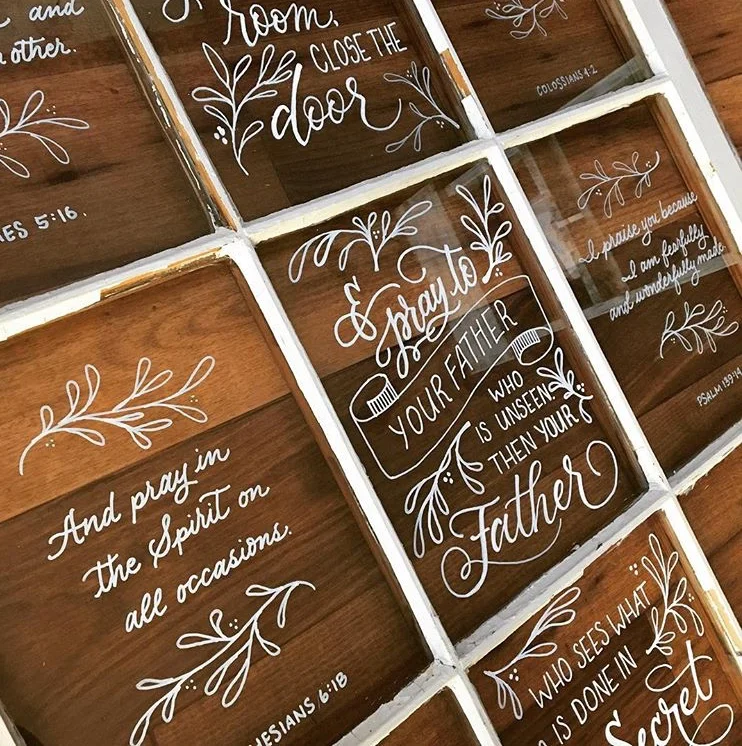 and
other.
5:16.
room.
CLOSE THE
door
COLOSSIANS 4:2
And pray in
the Spirit on
all occasions.
6:18
& pray to
YOUR FATHER
WHO
IS UNSEEN.
THEN YOUR
Father
I praise you because
I am fearfully
and wonderfully made.
PSALM 139:14
WHO SEES WHAT
IS DONE IN
Secret